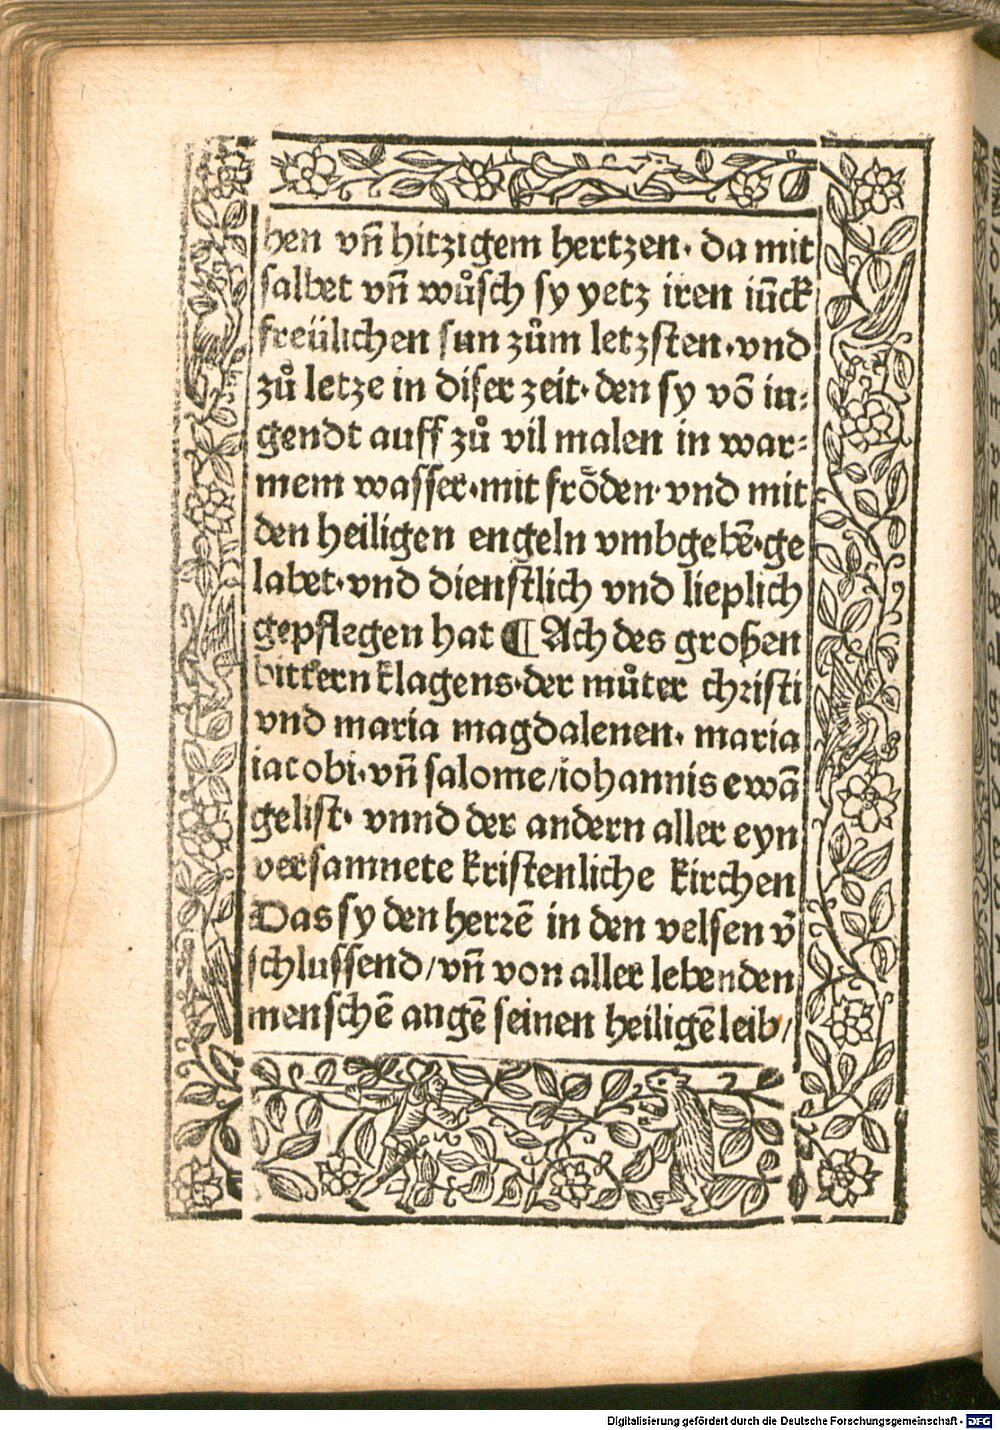 hen vñ hitzigem hertzen· da mit
salbet vñ wůsch sy yetz iren iūck
freülichen sun zům letzsten·vnd
zů letze in diser zeit· den sy võ in⸗
gendt auff zů vil malen in war⸗
mem wasser·mit frőden·vnd mit
den heiligen engeln vmbgebẽ·ge
labet·vnd dienstlich vnd lieplich
gepflegen hat ¶ Ach des großen
bittern klagens·der můter christi
vnd maria magdalenen· maria
iacobi·vñ salome/iohannis ewã
gelist· vnnd der andern aller eyn
versamnete kristenliche kirchen
Das sy den herrẽ in den velsen ṽ
schlussend/vñ von aller lebenden
menschẽ angẽ seinen heiligẽ leib/
Digitalisierung gefördert durch die Deutsche Forschungsgemeinschaft - DFG